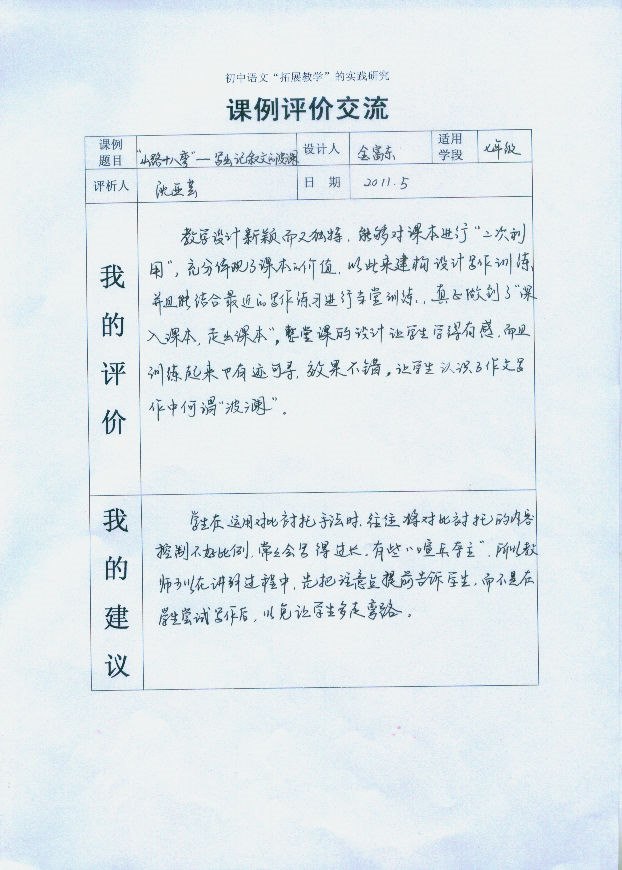 初中语文“拓展教学”的实践研究
课例评价交流
课例题目 “山路十八弯”—写出记叙文的波澜 设计人 金富东 适用学段 七年级
评析人 沈亚芸 日 期 2011.5
我的评价
教学设计新颖而又独特，能够对课本进行“二次利
用”，充分体现了课本的价值，以此来建构设计写作训练，
并且能结合最近的写作练习进行当堂训练，真正做到了“课
入课本，走出课本”。整堂课的设计让学生学得有感，而且
训练起来也有迹可寻，效果不错。让学生认识了作文写
作中何谓“波澜”。
我的建议
学生在运用对比衬托手法时，往往将对比衬托的内容
控制不好比例，常常会写得过长，有些“喧宾夺主”，所以教
师可以在讲科过程中，先把注意点提前告诉学生，而不是在
学生尝试写作后，以免让学生多走弯路。